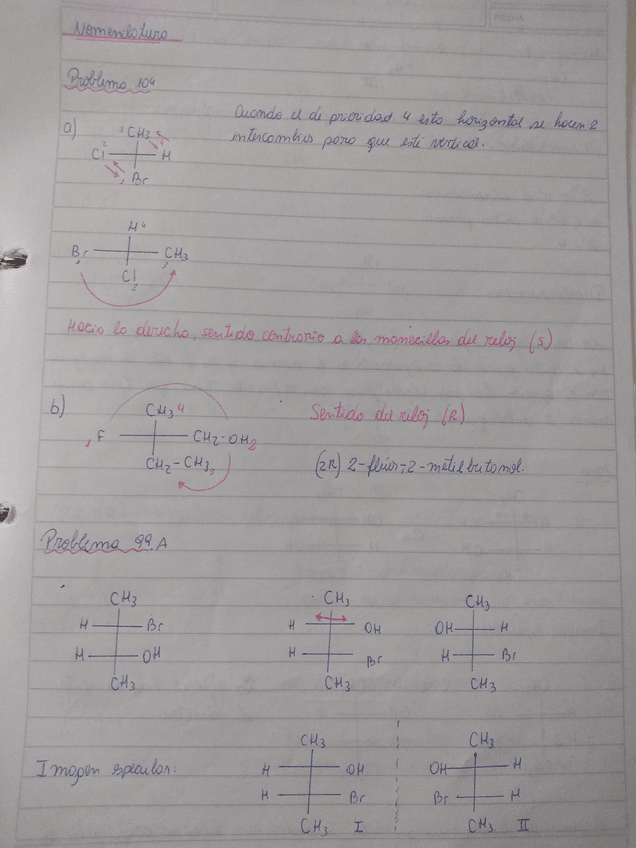 FECHA
Nomenclatura
Problema 104
Cuando el de prioridad 4 esta horizontal se hacen 2
intercambios para que esté vertical.
a)
3 CH3
Cl 2 H 4
1 Br
H 4
Br CH3
1 3
Cl
2
Hacia la derecha, sentido contrario a las manecillas del reloj (S)
b)
CH3 4
Sentido del reloj (R)
1 F CH2-OH 2
CH2-CH3 3
(2R) 2-flúor-2-metilbutanol.
Problema 99.A
CH3 CH3 CH3
H Br H OH OH H
H OH H Br H Br
CH3 CH3 CH3
Imagen especular:
CH3 CH3
H OH OH H
H Br Br H
CH3 I CH3 II